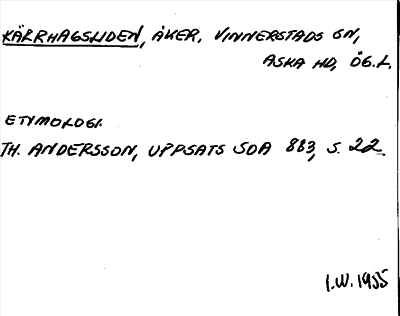 KÄRRHAGSLIDEN, ÅKER, VINNERSTADS SN,
ASKA HD, ÖG.L.
ETYMOLOGI.
TH. ANDERSSON, UPPSATS SOA 883, S. 22.
I.W. 1955